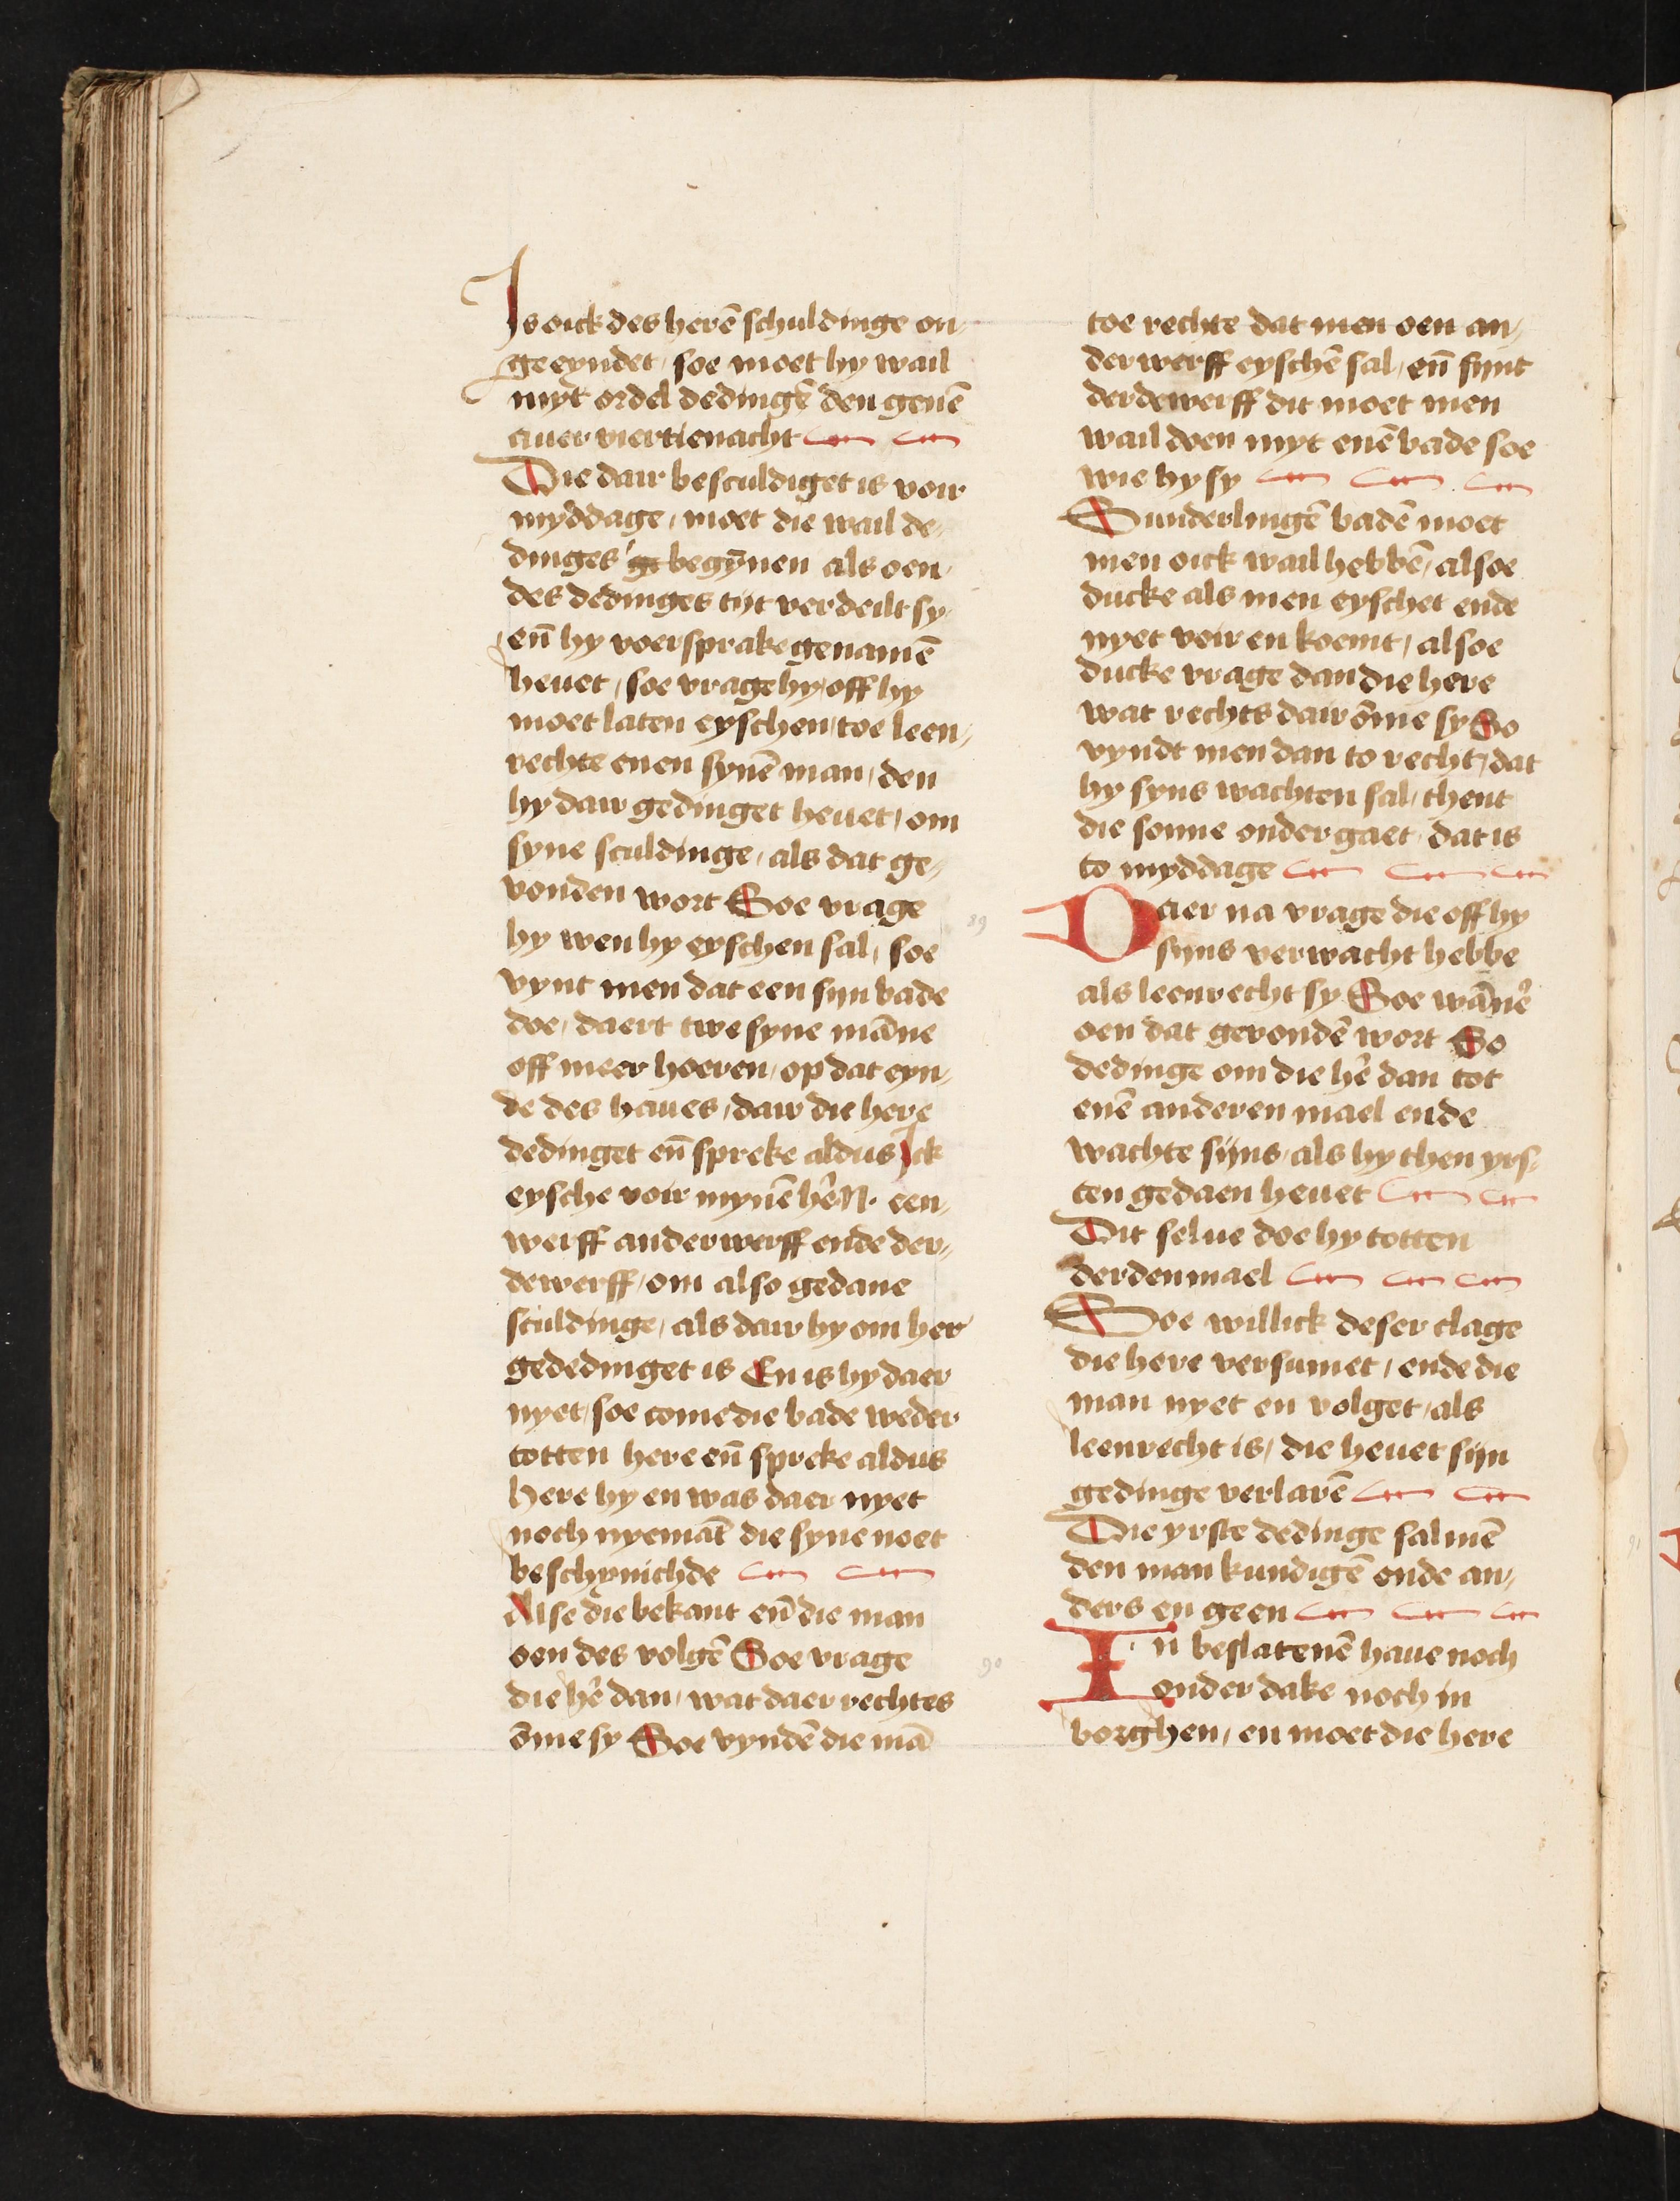 Is oick des herē schuldinge on⸗
ge eyndet / soe moet hy wail
myt ordel dedingē den genē
auer viertienacht
Die dair besculdiget is voir
myddage / moet die wail de⸗
dinges ge begȳnen als oen
des dedinges tijt verdeilt sy
eñ hy voersprake genamē
heuet / soe vrage hy / off hy
moet laten eyschen / toe leen⸗
rechte enen synē man / den
hy dair gedinget heuet / om
syne sculdinge / als dat ge⸗
vonden wort Soe vrage
hy wen hy eyschen sal / soe
vynt men dat een sijn bade
doe / daert twe syne māne
off meer hoeren / op dat eyn⸗
de des haues / dair die here
dedinget eñ spreke aldus Ick
eysche voir mynē hēr N. een⸗
werff anderwerff ende der⸗
dewerff / om also gedane
sculdinge / als dair hy om her
gededinget is En is hy daer
nyet / soe come die bade weder
totten here eñ spreke aldus
Here hy en was daer nyet
noch nyemāt die syne noet
beschynichde
Alse die bekant eñ die man
oen des volgē Soe vrage
die hēr dan / wat daer rechtes
ōme sy Soe vyndē die mā
toe rechte dat men oen an⸗
derwerff eyschē sal / eñ sijnt
derdewerff dit moet men
wail doen myt enē bade soe
wie hy sy
Sunderlingē badē moet
men oick wail hebbē / alsoe
ducke als men eyschet ende
nyet voir en koemt / alsoe
ducke vrage dan die here
wat rechts dair ōme sy So
vyndt men dan to recht / dat
hy syns wachten sal / thent
die sonne onder gaet dat is
to myddage
89
Daer na vrage die off hy
sijns verwacht hebbe
als leenrecht sy Soe wāner
oen dat gevondē wort So
dedinge om die hēr dan tot
enē anderen mael ende
wachte sijns / als hy then yrs⸗
ten gedaen heuet
Dit selue doe hy totten
derdenmael
Soe willick deser clage
die here versumet / ende die
man nyet en volget / als
leenrecht is / die heuet sijn
gedinge verlarē
Die yrste dedinge sal mē
den man kundigē ende an⸗
ders en geen
90
In beslatenē haue noch
onder dake noch in
borghen / en moet die here
91